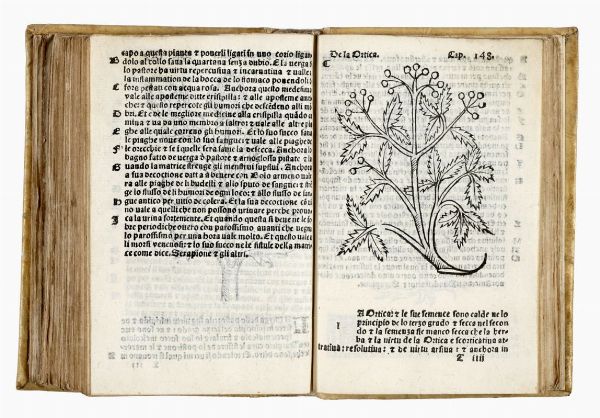 capo a questa pianta ⁊ ponerli ligati in uno corio ligan
B dolo al collo sana la quartana senza dubio. E la verga
lo pastore ha virtu repercusiua ⁊ incarnatiua ⁊ uale a
la inflammation de la bocca de lo stomaco ponendoli
C sore pestati con acqua rosa. Anchora questo medesimo
vale alle aposteme ditte erisipilla ⁊ alle aposteme an
cher: ⁊ questo repercote gli humori che descendeno alli mẽ
D bri. Et e de le megliore medicine alla erisipilla quãdo ca
mina ⁊ ua da uno membro a laltro ⁊ uale alle altre pia
E ghe alle quale correno gli humori. Et lo suo succo sana
le piaghe noue con lo suo sangue: ⁊ uale alle piaghe de
F le orecchie ⁊ se i quelle sera sanie la desecca. Anchora il
bagno fatto de verga d̃ pastore ⁊ arnoglossa pestate ⁊ la
G uando la matrice strenge gli menstrui supflui. Anchora
a sua decoctione datta a beuere con Bolo armeno vale
ra alle piaghe de li budelli ⁊ alio sputo de sangue: ⁊ strẽ
ge lo flusso de li humori de ogni loco: ⁊ allo flusso de san
H gue antico per uitio de colera. Et la sua decoctione cõ ui
no uale a quelli che non possono vrinare perche prouo
I ca la vrina fortemente. Et quando questa si beue ne le fe
bre periodiche onero con parossismo, auanti che vegna
lo parossismo per una hora uale molto. Et questo uale a
li morsi venenosi: ⁊ lo suo succo ne le fistule della mane
ce come dice. Serapione ⁊ gli altri.
De la Ortica. Cap. 148.
LA Ortica: ⁊ le sue semente sono calde ne lo
principio de lo terzo grado ⁊ secca nel secon
I do ⁊ la semenza si e manco secca che la her
ba ⁊ la virtu de la Ortica e scorticatiua at
tratiua: resolutiua: ⁊ de virtu arsiua: ⁊ anchora in
T iiii